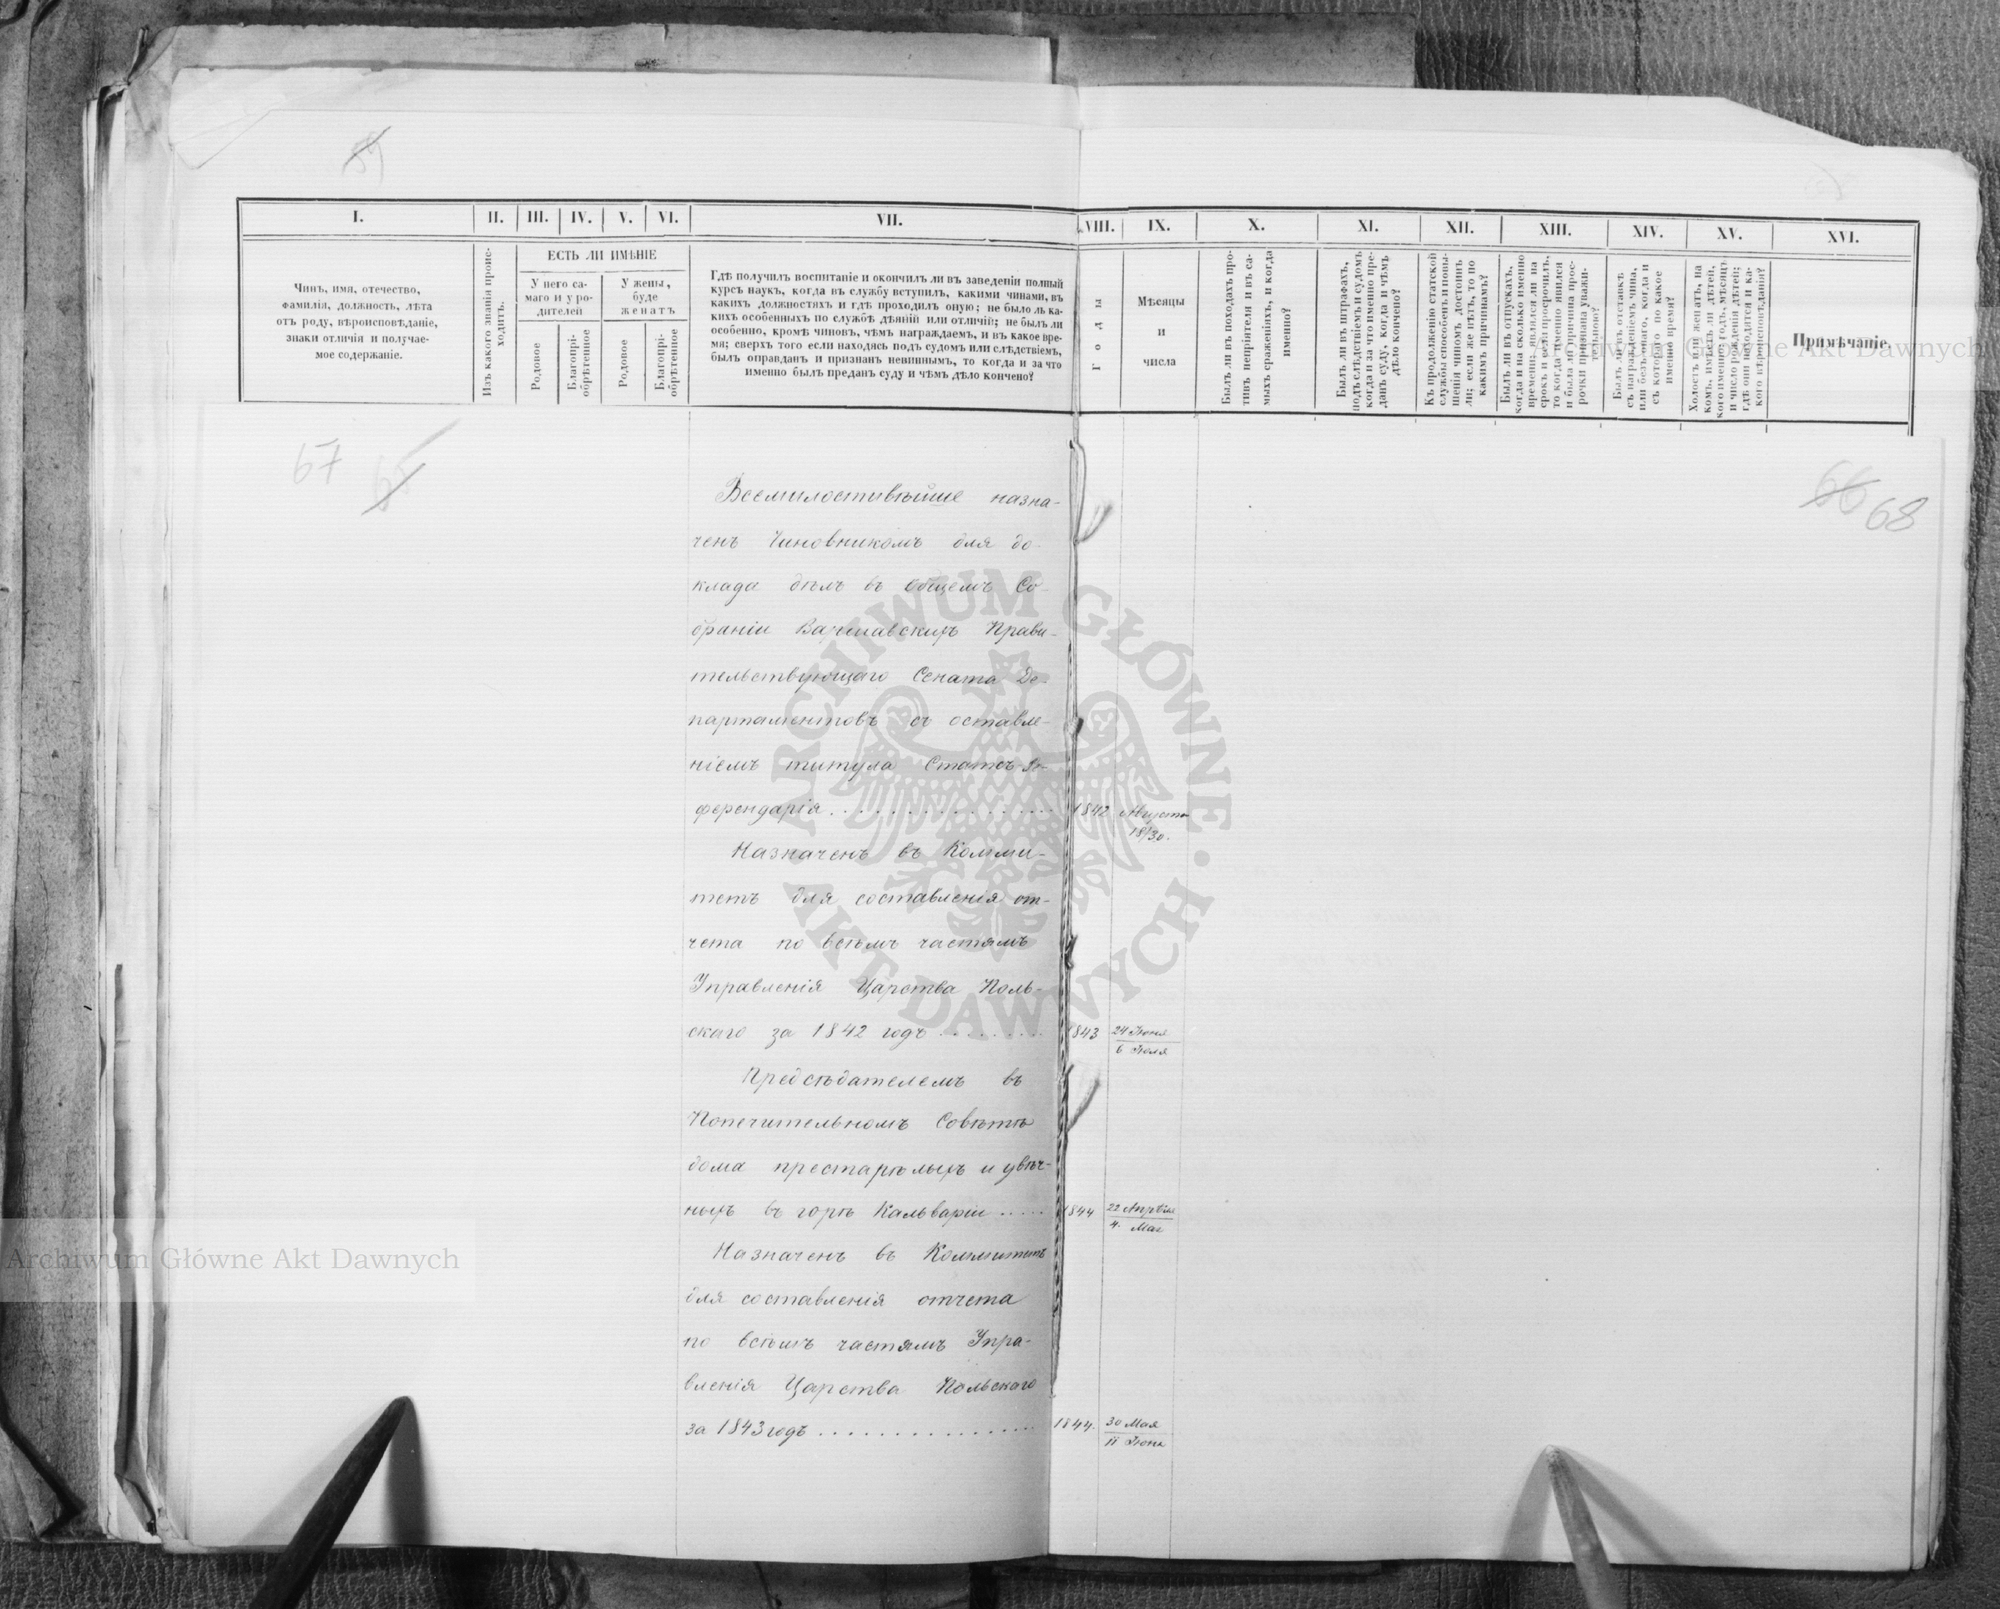 59
I.
II.
III.
IV.
V.
VI.
VII.
VIII.
IX.
X.
XI.
XII.
XIII.
XIV.
XV.
XVI.
Чинъ, имя, отечество,
фамилія, должность, лѣта
отъ роду, вѣроисповѣданіе,
знаки отличія и получае-
мое содержаніе.
Изъ какого званія проис-
ходитъ.
ЕСТЬ ЛИ ИМѢНІЕ
У него са-
маго и у ро-
дителей
У жены,
буде
женатъ
Родовое
Благопрі-
обрѣтенное
Родовое
Благопрі-
обрѣтенное
Гдѣ получилъ воспитаніе и окончилъ ли въ заведеніи полный
курсъ наукъ, когда въ службу вступилъ, какими чинами, въ
какихъ должностяхъ и гдѣ проходилъ оную; не было ль ка-
кихъ особенныхъ по службѣ дѣяній или отличій; не былъ ли
особенно, кромѣ чиновъ, чѣмъ награждаемъ, и въ какое вре-
мя; сверхъ того если находясь подъ судомъ или слѣдствіемъ,
былъ оправданъ и признанъ невиннымъ, то когда и за что
именно былъ преданъ суду и чѣмъ дѣло кончено?
Годы
Мѣсяцы
и
числа
Былъ ли въ походахъ про-
тивъ непріятеля и въ са-
мыхъ сраженіяхъ, и когда
именно?
Былъ ли въ штрафахъ,
подъ слѣдствіемъ и судомъ
когда и за что именно пре-
данъ суду, когда и чѣмъ
дѣло кончено?
Къ продолженію статской
службы способенъ и повы-
шенія чиномъ достоинъ
ли; если же нѣтъ, то по
какимъ причинамъ?
Былъ ли въ отпускахъ,
когда и на сколько именно
времени; явился ли на
срокъ и если просрочилъ,
то когда именно явился
и была ли причина прос-
рочки признана уважи-
тельною?
Былъ ли въ отставкѣ
съ награжденіемъ чина,
или безъ онаго, когда и
съ котораго по какое
именно время?
Холостъ или женатъ, на
комъ, имѣетъ ли дѣтей,
кого именно; годъ, мѣсяцъ
и число рожденія дѣтей;
гдѣ они находятся и ка-
кого вѣроисповѣданія?
Примѣчаніе.
67
66 68
Всемилостивѣйше назна-
ченъ Чиновникомъ для до-
клада дѣлъ въ Общемъ Со-
браніи Варшавскихъ Прави-
тельствующаго Сената Де-
партаментовъ съ оставле-
ніемъ титула Статсъ-Ре-
ферендарія. . . . 1842 Августа
18/30.
Назначенъ въ Комми-
тетъ для составленія от-
чета по всѣмъ частямъ
Управленія Царства Поль-
скаго за 1842 годъ . . . . 1843 24 Іюня
6 Іюля
Предсѣдателемъ въ
Попечительномъ Совѣтѣ
дома престарѣлыхъ и увѣч-
ныхъ въ горѣ Кальваріи . . . . 1844 22 Апрѣля
4. Мая
Назначенъ въ Коммитетъ
для составленія отчета
по всѣмъ частямъ Упра-
вленія Царства Польскаго
за 1843 годъ . . . . 1844. 30 Мая
11 Іюня
ARCHIWUM GŁÓWNE AKT DAWNYCH
Archiwum Główne Akt Dawnych
Archiwum Główne Akt Dawnych